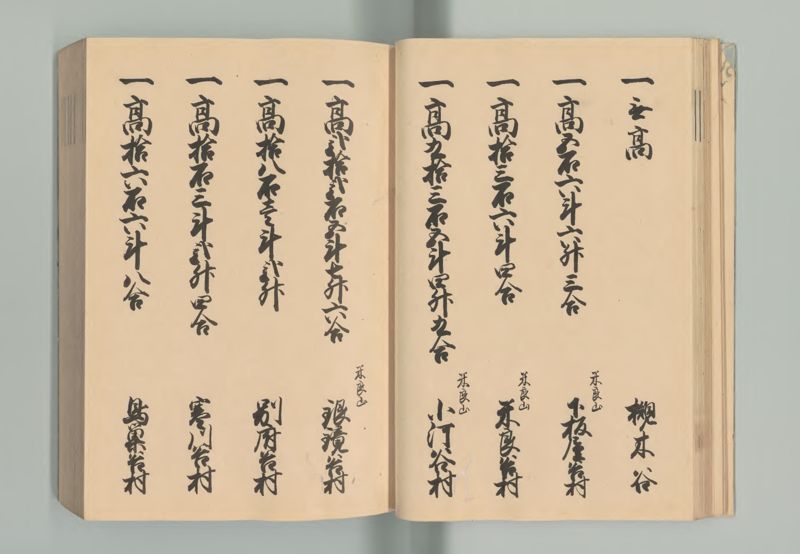 一無高 槻木谷
一高五石六斗六升三合 米良山 下板屋谷村
一高拾三石六斗四合 米良山 米良谷村
一高九拾三石五斗四升九合 米良山 小河谷村
一高弐拾弐石五斗七升六合 米良山 銀鏡谷村
一高拾八石壱斗弐升 別府谷村
一高拾石三斗弐升四合 寒川谷村
一高拾六石六斗八合 鳥巣谷村